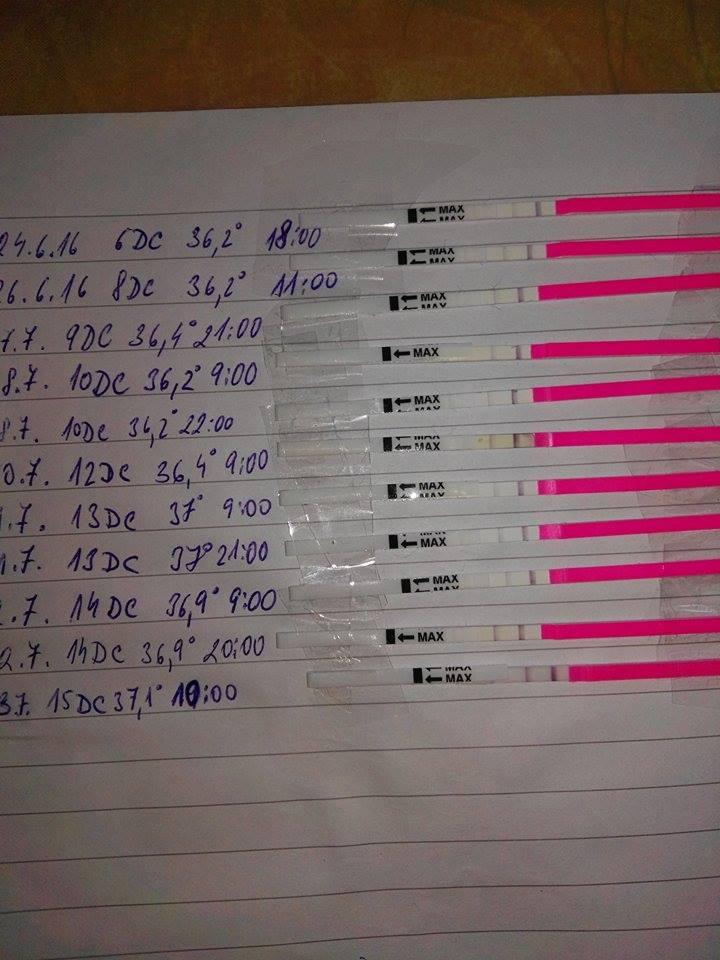 24.6.16 6DC 36,2° 18:00 MAX
26.6.16 8DC 36,2° 11:00 MAX
7.7. 9DC 36,4° 21:00 MAX
8.7. 10DC 36,2° 9:00 MAX
8.7. 10DC 36,2° 22:00 MAX
0.7. 12DC 36,4° 9:00 MAX
1.7. 13DC 37° 9:00 MAX
1.7. 13DC 37° 21:00 MAX
2.7. 14DC 36,9° 9:00 MAX
2.7. 14DC 36,9° 20:00 MAX
3.7. 15DC 37,1° 10:00 MAX